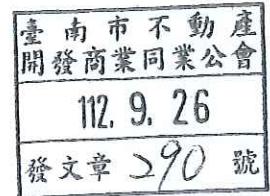 臺南市不動產
開發商業同業公會
112. 9. 26
發文章290號